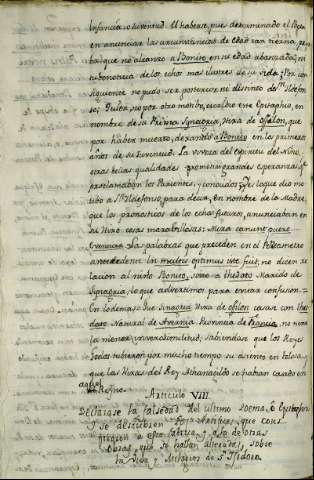 Infancia o Juventud. El haberse, pues determinado el Poeta
en anunciar las circunstancias de edad tan tierna, prue
ba que no alcanzo a Bonito, en su edad abanzada, ni
tubo noticia de los echos mas ilustres de su vida. Por con
siguiente no pudo ser posterior, ni distinto de Sn Ildefon
so; Quien, no por otro motibo, escribio ese Epitaphio, en
nombre de su Prima Synagria, Hixa de Osilon, que
por haber muerto, dexando a Bonito en los primeros
años de su Juventud. La viveza del Espiritu del Niño,
otras bellas qualidades prometian grandes esperanzas, que
proclamaban los Parientes, y conocidos. Y es lo que dio mo
tibo a Sn Ildefonso, para decir, en nombre de la Madre,
que los pronosticos de los echos futuros, anunciaban en
su Hixo cosas marabillosas: Mira canunt
Las palabras que preceden en el Pentametro
antecedente: In multis optimus iste fuit; no dicen re
lacion al niño Bonito, sino a Marido de
Synagria; lo que advertimos para evitar confusion.
En lo demas que Synagria Hixa de Osilon casara con
Natural de Provincia de Francia, no tiene
la menor inverosimilitud; sabiendose que los Reyes
Godos tubieron por mucho tiempo su asiento en
que las Hixas del Rey Athanagildo se habian casado en
aquel Reyno.
Articulo VIII.
Declarase la falsedad del ultimo Poema, o Epitafio,
y se descubren los que cons
piraron a esta fabrica, y a la de otras
Obras, que se hallan alteradas, sobre
la Vida, y Milagros de Sn Isidoro.